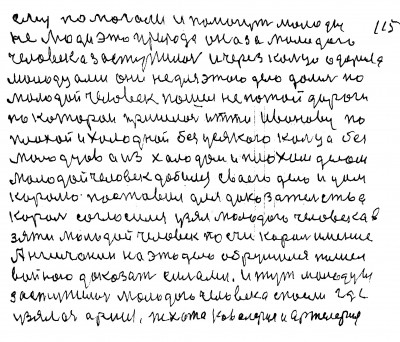 ему помогали и помогут молодцы 115
не люди это природа он за молодого
человека заступился и через кольцо одарила
молодцами они не для этого дело долг по
молодой человек пошел не по той дороги
по которой пришлося итти Иванову по
плохой и холодной без всякого кольца без
молодцов а из холодом и плохим делом
молодой человек добился своего дело и дом
королю поставил для доказательства
король согласился узял молодого человека в
зяти молодой человек почти король имение
Англичанин на это дело обрушился пошел
войною доказат силами, и тут молодцы
заступились молодого человека спасли где
узялся армия, пехота кавалерия и артелерия